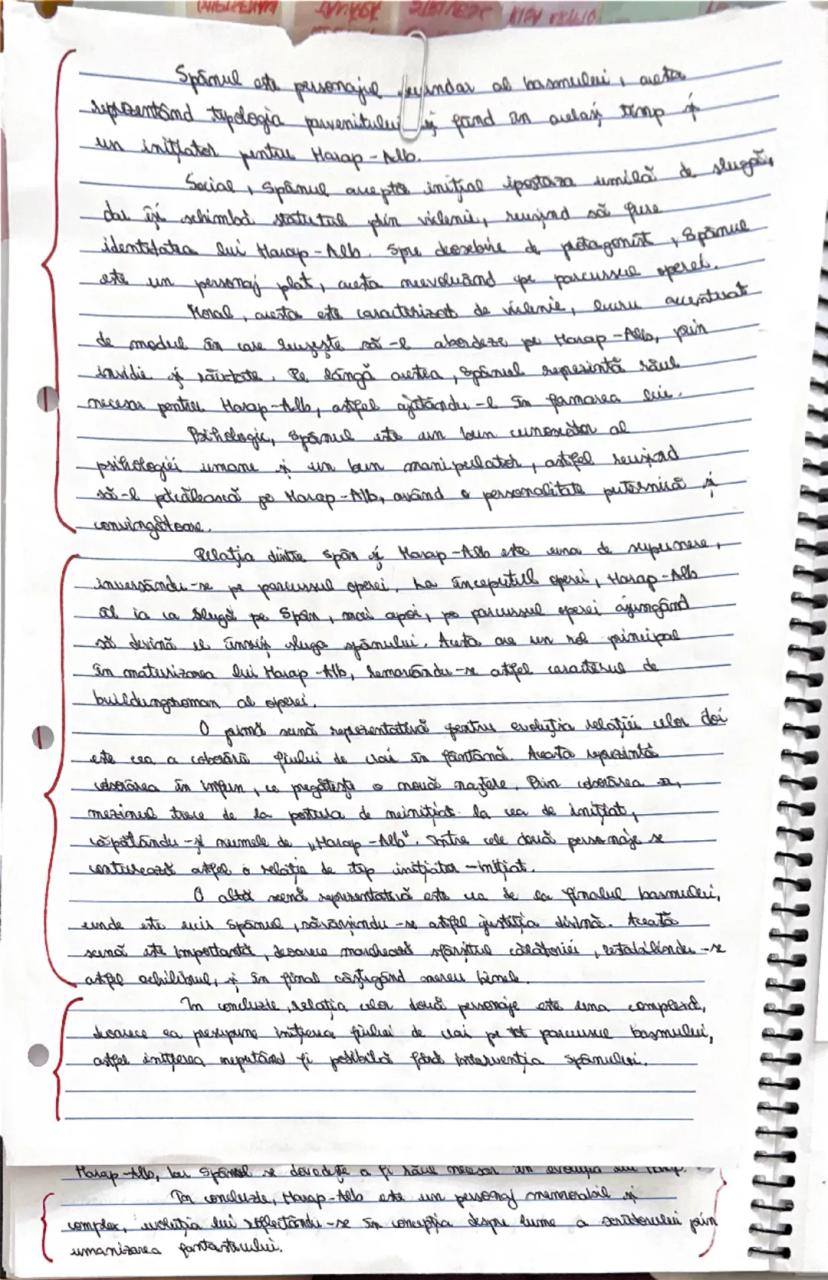 Spânul este personajul secundar al basmului, acesta
reprezentând tipologia parvenitului și fiind în același timp și
un inițiator pentru Harap-Alb.
Social, Spânul acceptă inițial ipostaza umilă de slugă,
dar își schimbă statutul prin viclenie, reușind să fure
identitatea lui Harap-Alb. Spre deosebire de protagonist, Spânul
este un personaj plat, acesta neevoluând pe parcursul operei.
Moral, acesta este caracterizat de viclenie, lucru accentuat
de modul în care reușește să-l abordeze pe Harap-Alb, prin
invidie și răutate. Pe lângă acestea, Spânul reprezintă răul
necesar pentru Harap-Alb, astfel ajutându-l în formarea lui.
Psihologic, Spânul este un bun cunoscător al
psihologiei umane și un bun manipulator, astfel reușind
să-l păcălească pe Harap-Alb, având o personalitate puternică și
convingătoare.
Relația dintre Spân și Harap-Alb este una de supunere,
inversându-se pe parcursul operei. La începutul operei, Harap-Alb
îl ia ca slugă pe Spân, mai apoi, pe parcursul operei ajungând
să devină el însuși sluga spânului. Acesta are un rol principal
în maturizarea lui Harap-Alb, remarcându-se astfel caracterul de
buildungsroman al operei.
O primă scenă reprezentativă pentru evoluția relației celor doi
este cea a coborârii fiului de crai în fântână. Aceasta reprezintă
coborârea în infern, ce pregătește o nouă naștere. Prin coborârea sa,
mezinul trece de la postura de neinițiat la cea de inițiat,
căpătându-și numele de „Harap-Alb". Între cele două personaje se
conturează astfel o relație de tip inițiator-inițiat.
O altă scenă reprezentativă este cea de la finalul basmului,
unde este ucis Spânul, săvârșindu-se astfel justiția divină. Această
scenă este importantă, deoarece marchează sfârșitul călătoriei, restabilindu-se
astfel echilibrul, și în final câștigând mereu binele.
În concluzie, relația celor două personaje este una complexă,
deoarece ea presupune inițierea fiului de crai pe tot parcursul basmului,
astfel inițierea neputând fi posibilă fără intervenția spânului.
Harap-Alb, iar Spânul se dovedește a fi răul necesar în evoluția
În concluzie, Harap-Alb este un personaj memorabil și
complex, evoluția lui reflectându-se în concepția despre lume a scriitorului prin
umanizarea fantasticului.